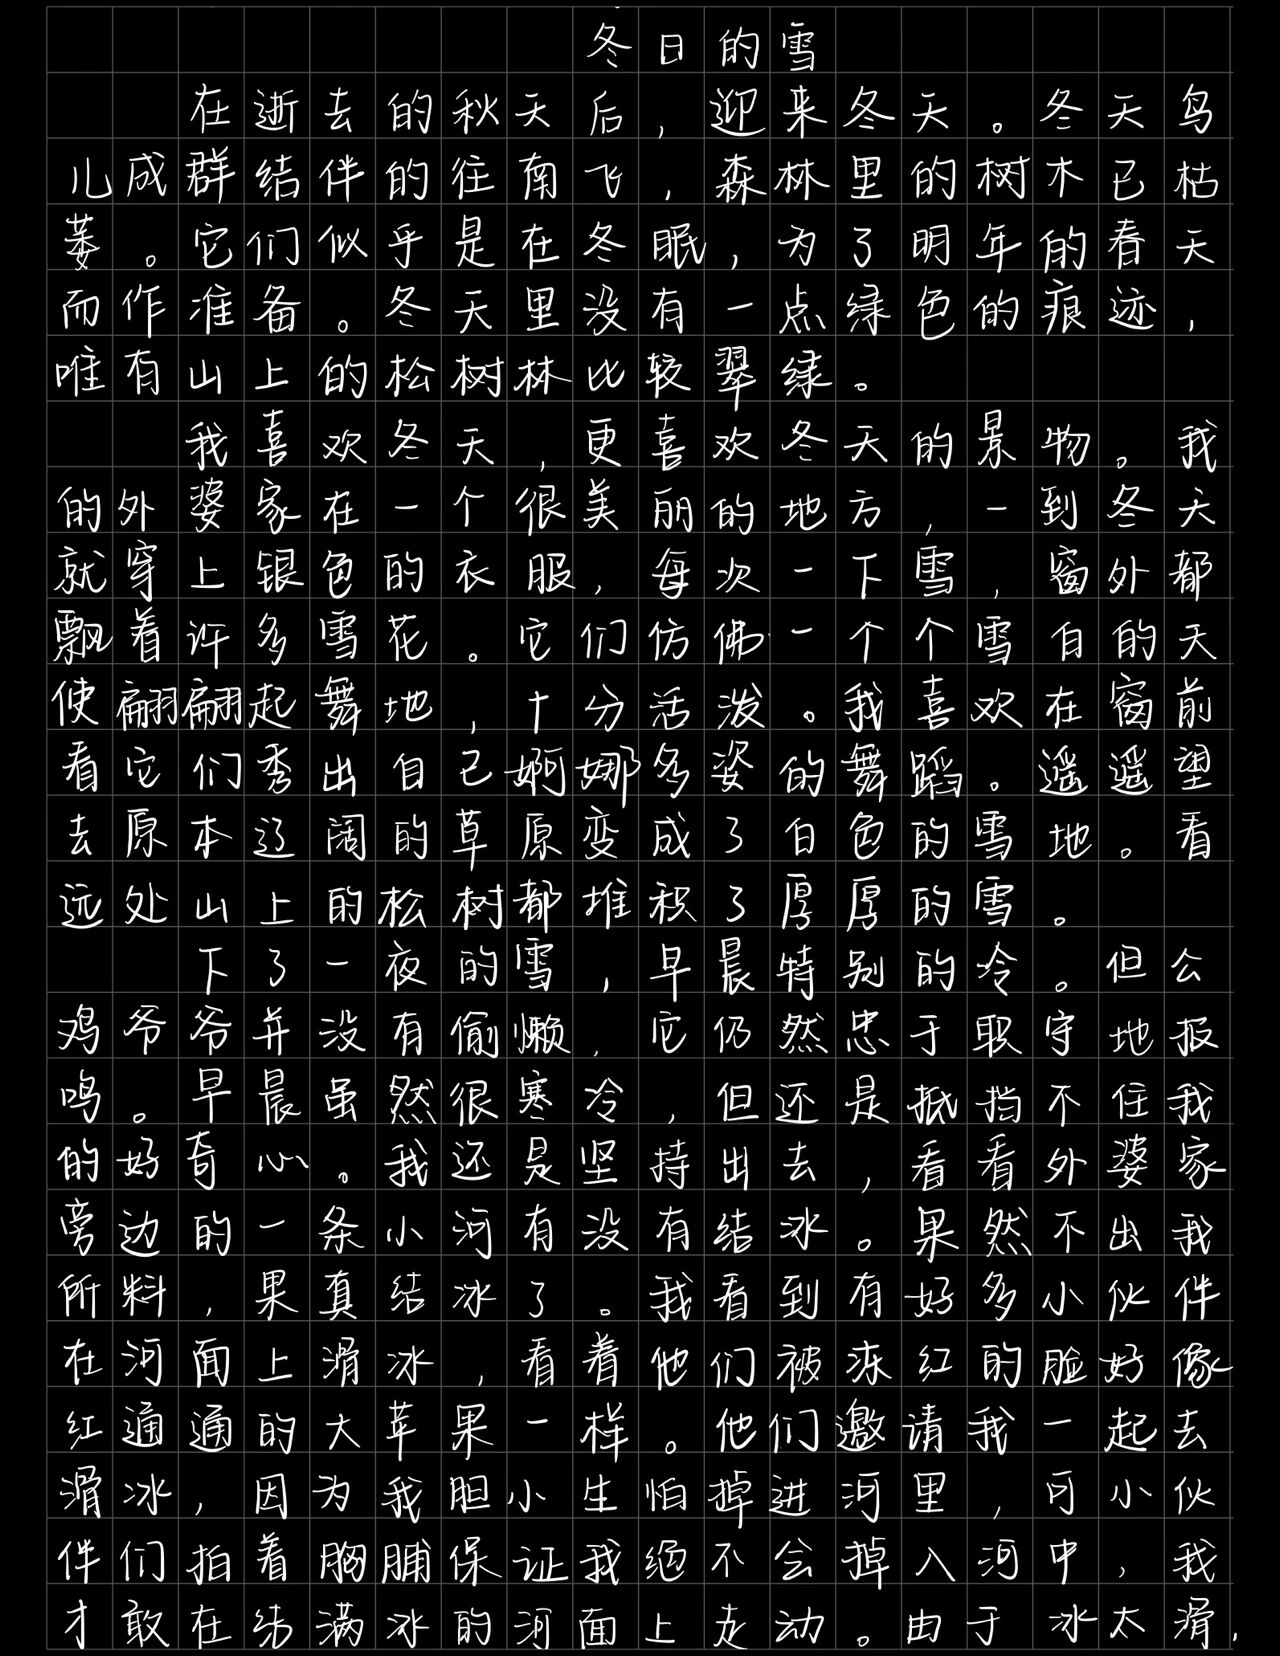 冬日的雪
在逝去的秋天后，迎来冬天。冬天鸟
儿成群结伴的往南飞，森林里的树木已枯
萎。它们似乎是在冬眠，为了明年的春天
而作准备。冬天里没有一点绿色的痕迹，
唯有山上的松树林比较翠绿。
我喜欢冬天，更喜欢冬天的景物。我
的外婆家在一个很美丽的地方，一到冬天
就穿上银色的衣服，每次一下雪，窗外都
飘着许多雪花。它们仿佛一个个雪白的天
使翩翩起舞地，十分活泼。我喜欢在窗前
看它们秀出自己婀娜多姿的舞蹈。遥遥望
去原本辽阔的草原变成了白色的雪地。看
远处山上的松树都堆积了厚厚的雪。
下了一夜的雪，早晨特别的冷。但公
鸡爷爷并没有偷懒，它仍然忠于职守地报
鸣。早晨虽然很寒冷，但还是抵挡不住我
的好奇心。我还是坚持出去，看看外婆家
旁边的一条小河有没有结冰。果然不出我
所料，果真结冰了。我看到有好多小伙伴
在河面上滑冰，看着他们被冻红的脸好像
红通通的大苹果一样。他们邀请我一起去
滑冰，因为我胆小生怕掉进河里，可小伙
伴们拍着胸脯保证我绝不会掉入河中，我
才敢在结满冰的河面上走动。由于冰太滑，